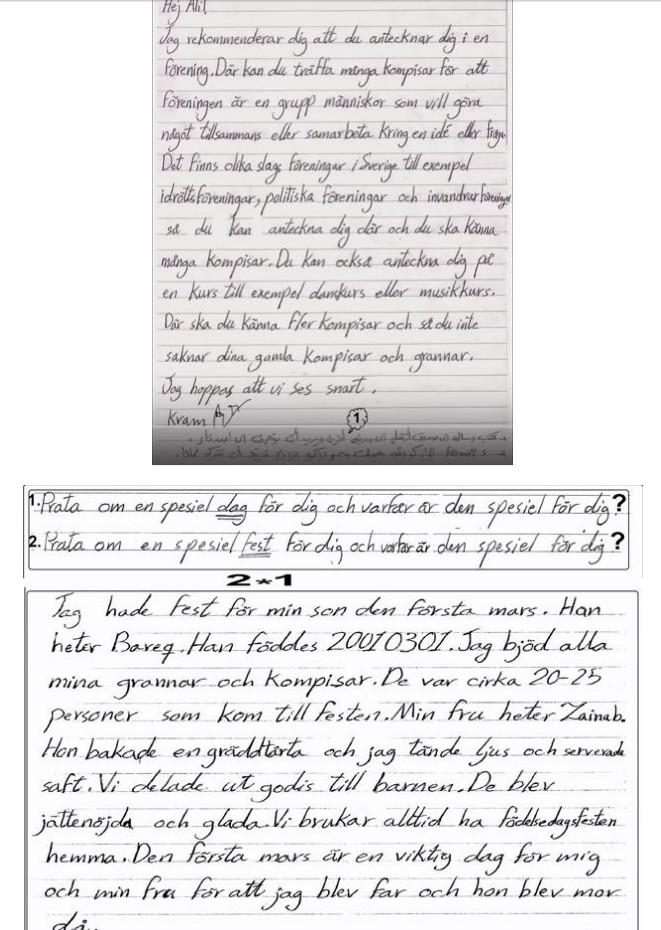 Hej Ali!
Jag rekommenderar dig att du antecknar dig i en
förening. Där kan du träffa många kompisar för att
föreningen är en grupp människor som vill göra
något tillsammans eller samarbeta kring en idé eller fråga
Det finns olika slags föreningar i Sverige till exempel
idrottsföreningar, politiska föreningar och invandrarföreningar
så du kan anteckna dig där och du ska känna
många kompisar. Du kan också anteckna dig på
en kurs till exempel danskurs eller musikkurs.
Där ska du känna fler kompisar och så du inte
saknar dina gamla kompisar och grannar.
Jag hoppas att vi ses snart.
Kram
1
1. Prata om en spesiel dag för dig och varför är den spesiel för dig?
2. Prata om en spesiel fest för dig och varför är den spesiel för dig?
2*1
Jag hade fest för min son den första mars. Han
heter Bareq. Han föddes 20010301. Jag bjöd alla
mina grannar och kompisar. De var cirka 20-25
personer som kom till festen. Min fru heter Zainab.
Hon bakade en gräddtårta och jag tände ljus och serverade
saft. Vi delade ut godis till barnen. De blev
jättenöjda och glada. Vi brukar alltid ha födelsedagsfesten
hemma. Den första mars är en viktig dag för mig
och min fru för att jag blev far och hon blev mor
då.